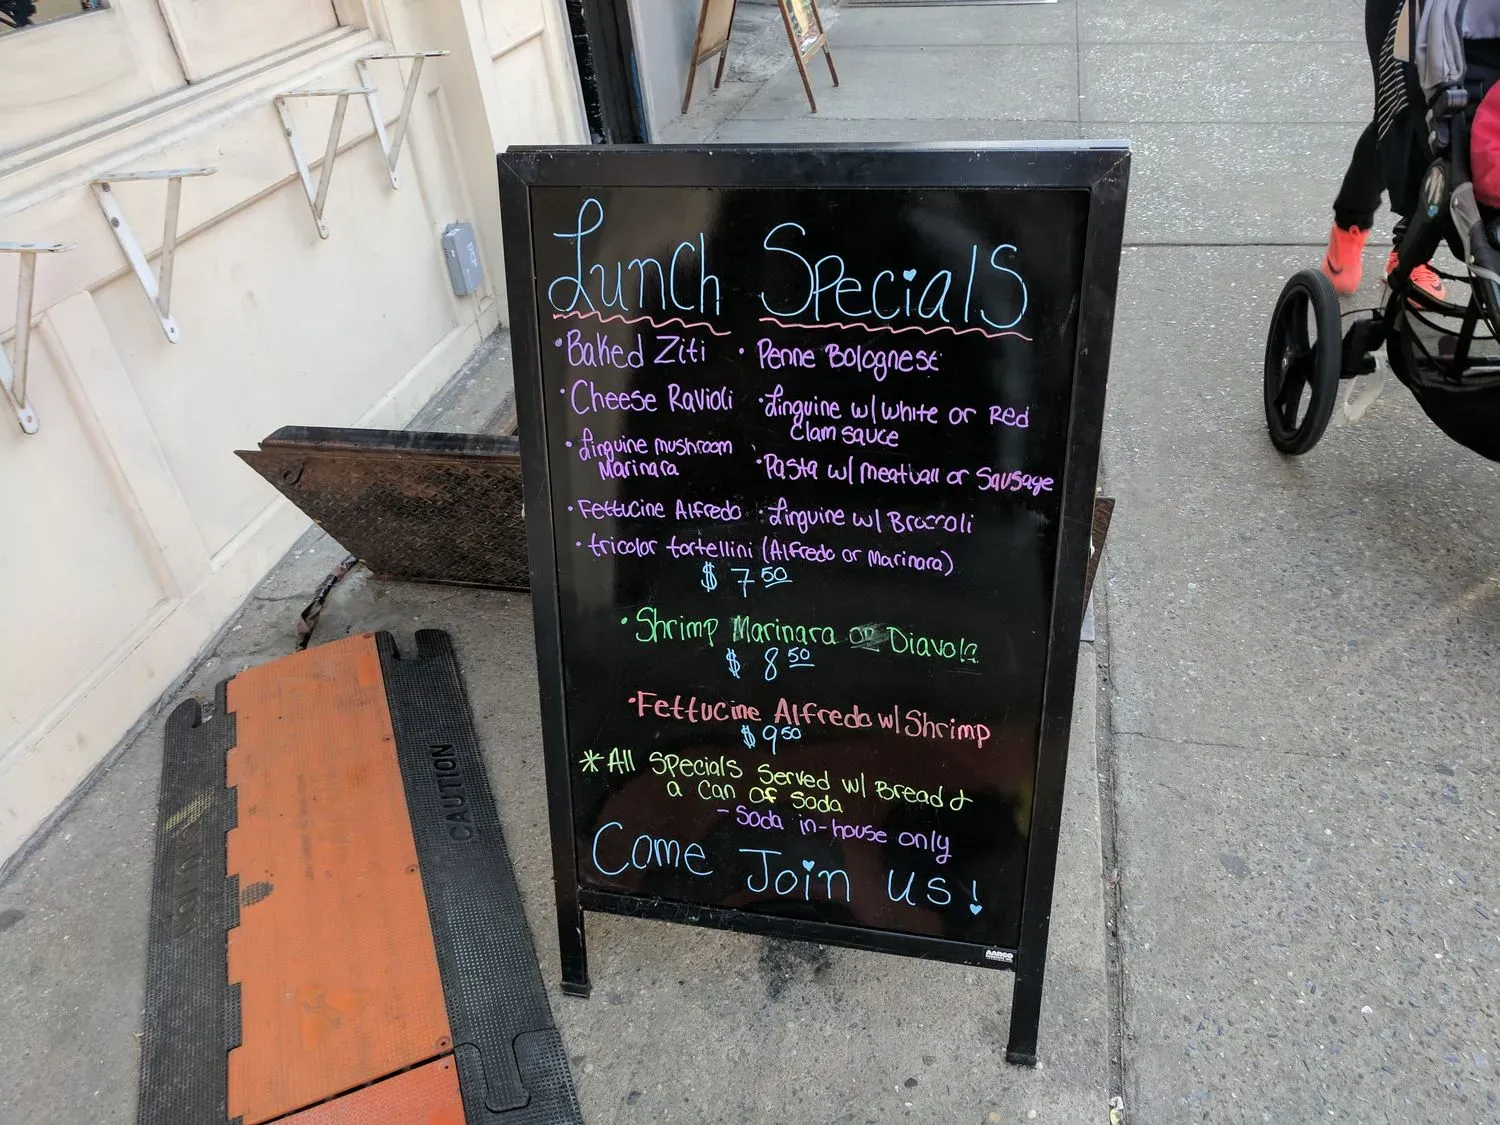 Lunch Specials
• Baked Ziti • Penne Bolognese
• Cheese Ravioli • Linguine w/ white or Red
Clam sauce
• Linguine mushroom
Marinara • Pasta w/ meatball or Sausage
• Fettucine Alfredo • Linguine w/ Broccoli
• tricolor tortellini (Alfredo or Marinara)
$ 7 50
• Shrimp Marinara or Diavola
$ 8 50
• Fettucine Alfredo w/ Shrimp
$ 9 50
* All Specials Served w/ Bread &
a Can Of Soda
- Soda in-house only
Come Join us!
AARCO
CAUTION